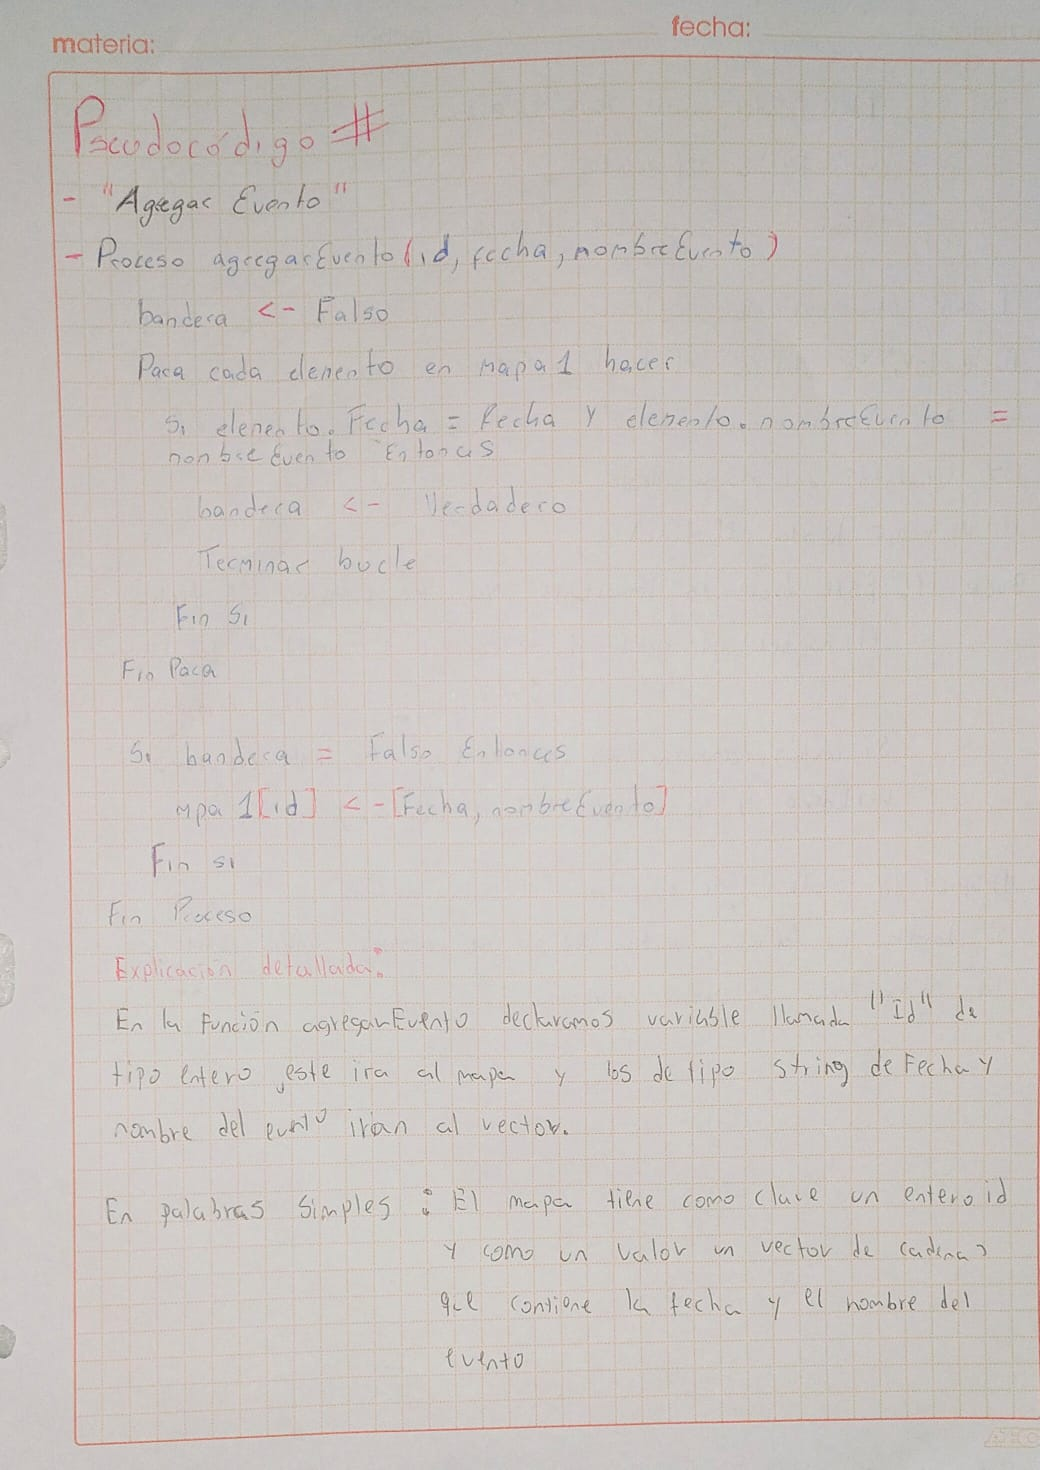 materia:
fecha:
Pseudocódigo #
- "Agregar Evento"
- Proceso agregarEvento (id, fecha, nombreEvento)
bandera <- Falso
Para cada elemento en mapa1 hacer
Si elemento.Fecha = fecha y elemento.nombreEvento =
nombreEvento Entonces
bandera <- Verdadero
Terminar bucle
Fin Si
Fin Para
Si bandera = Falso Entonces
mpa 1[id] <-[Fecha, nombreEvento]
Fin si
Fin Proceso
Explicación detallada:
En la función agregarEvento declaramos variable llamada "Id" de
tipo entero, este ira al mapa y los de tipo string de Fecha y
nombre del evento iran al vector.
En palabras simples : El mapa tiene como clave un entero id
y como un valor un vector de cadenas
que contiene la fecha y el nombre del
evento